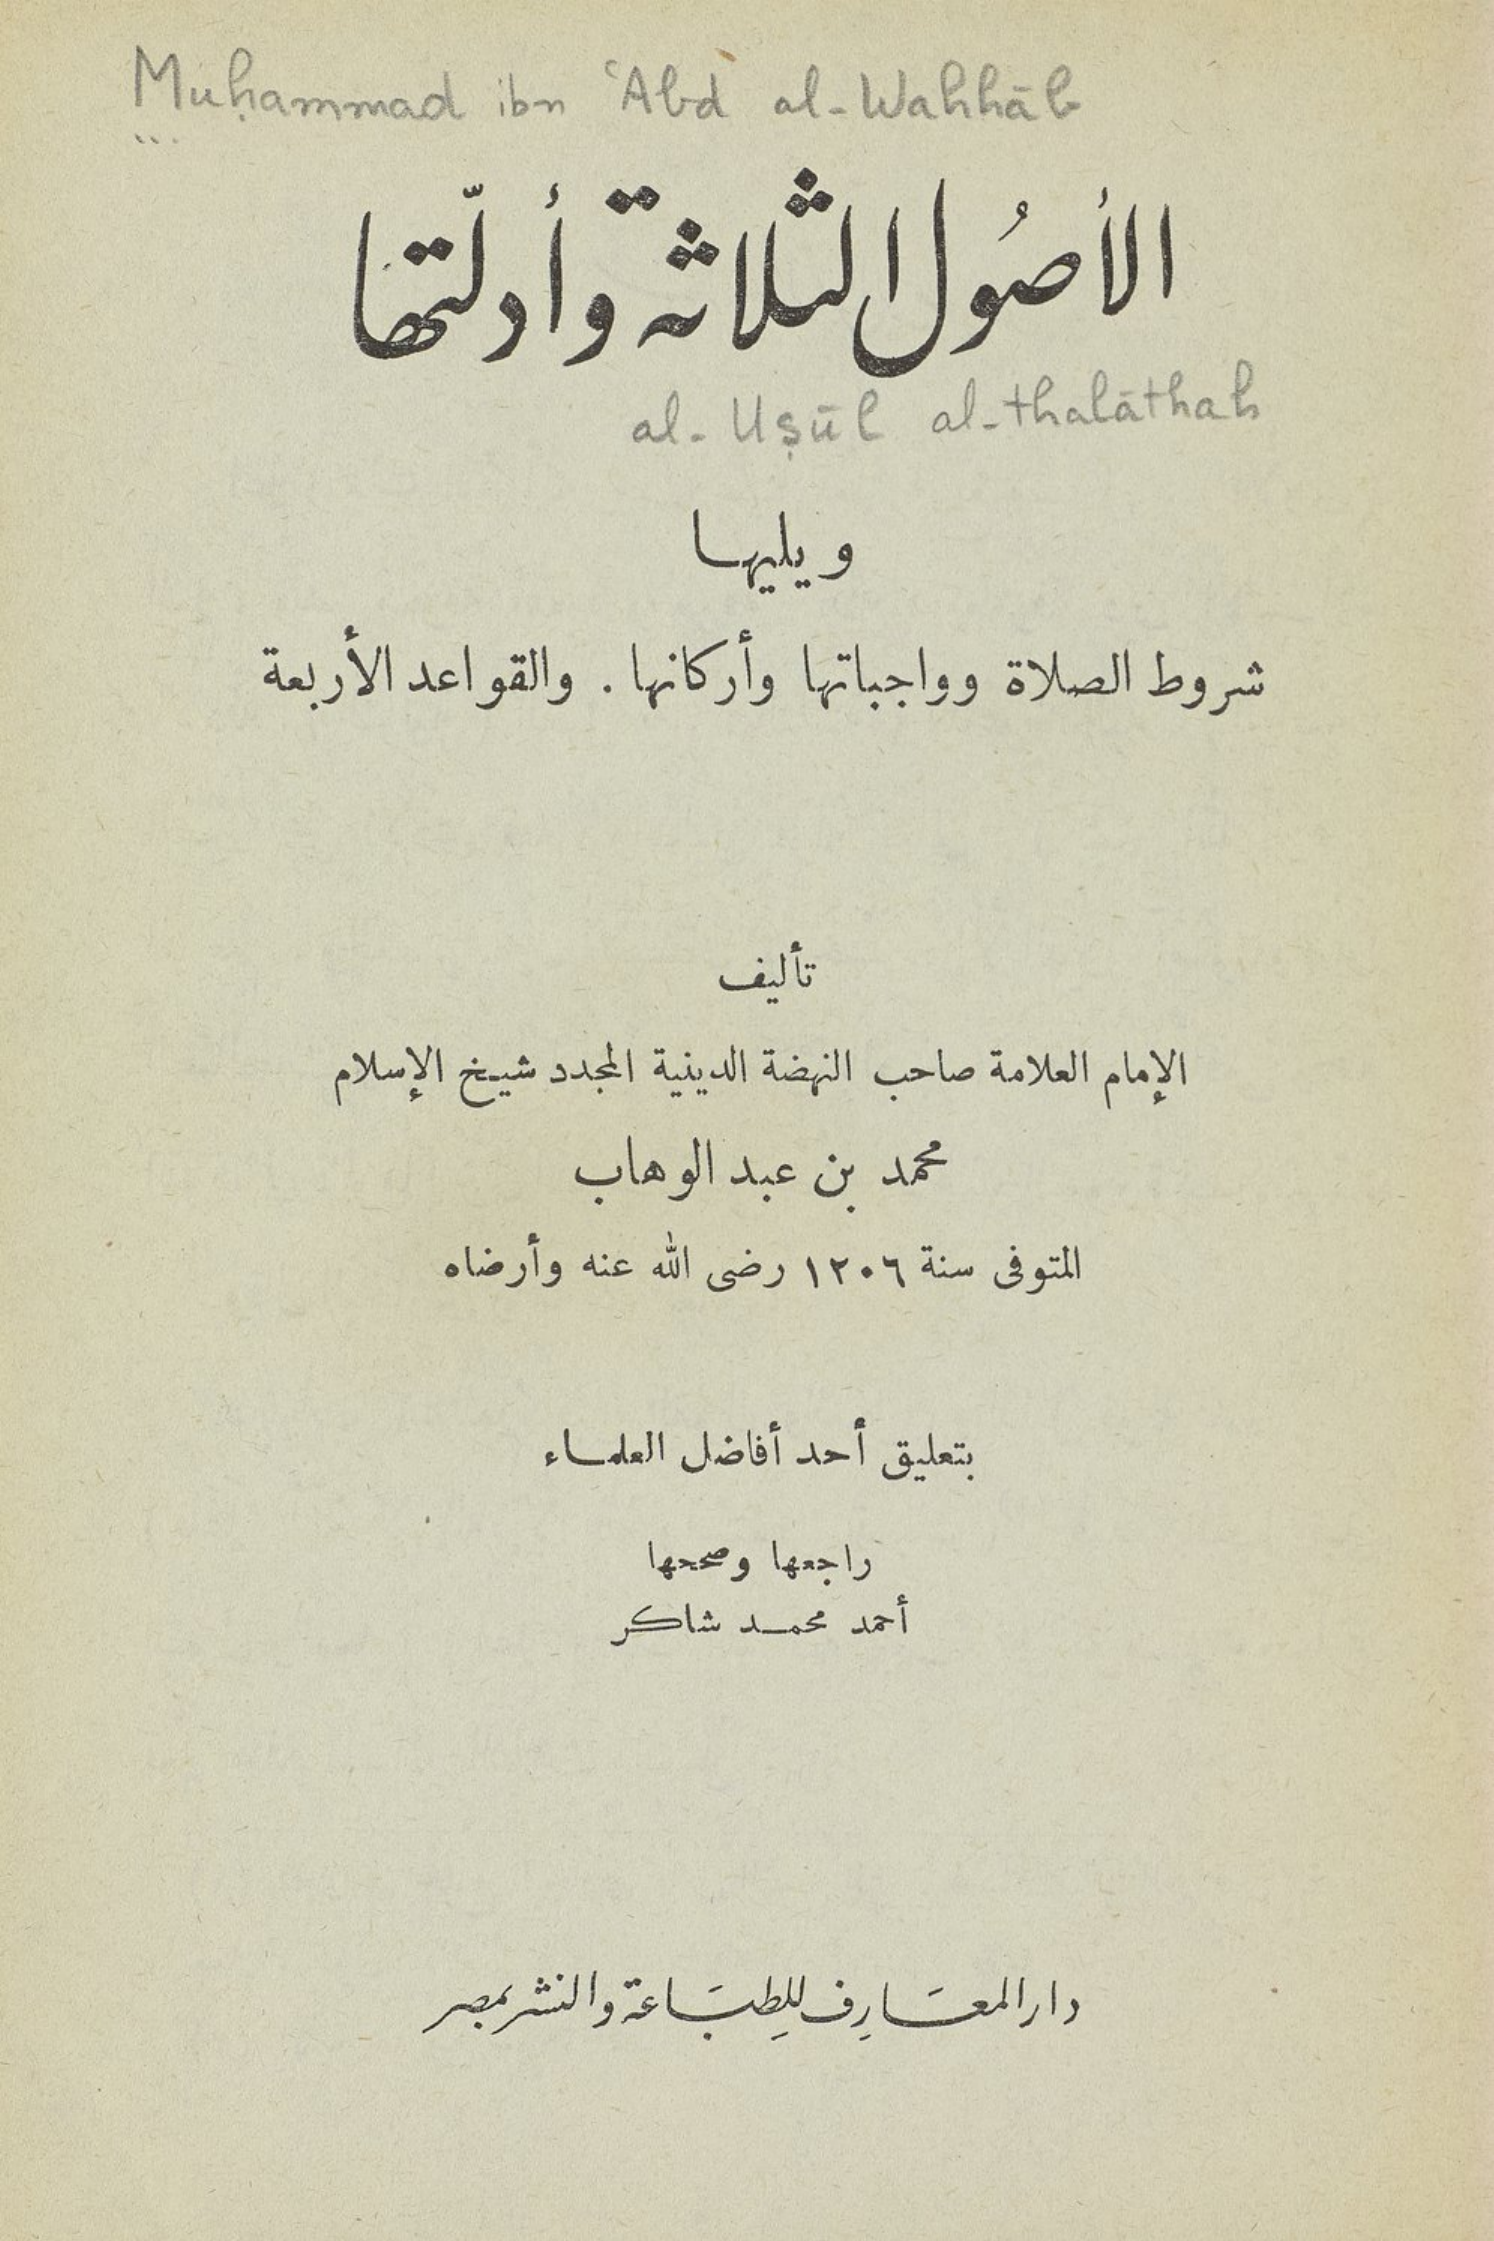 Muḥammad ibn ʿAbd al-Wahhāb
الأصُول الثلاثة وأدلّتها
al-Uṣūl al-thalāthah
ويليها
شروط الصلاة وواجباتها وأركانها . والقواعد الأربعة
تأليف
الإمام العلامة صاحب النهضة الدينية المجدد شيخ الإسلام
محمد بن عبد الوهاب
المتوفى سنة ١٢٠٦ رضى الله عنه وأرضاه
بتعليق أحد أفاضل العلماء
راجعها وصححها
أحمد محمد شاكر
دار المعَارِف للِطبَاعة والنشر بمصر